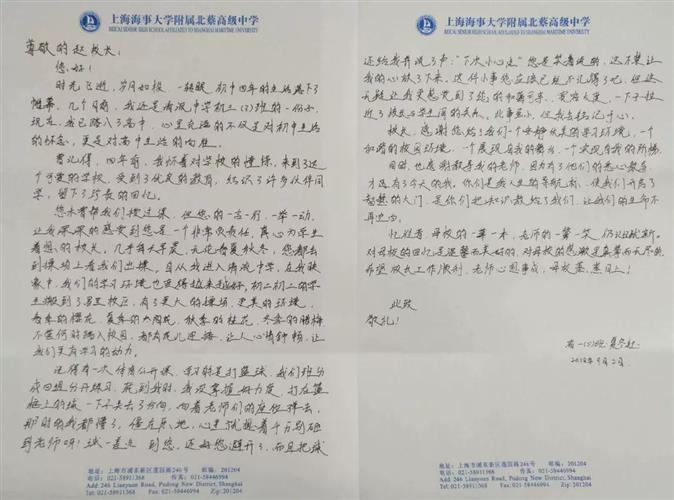 上海海事大学附属北蔡高级中学
BEICAI SENIOR HIGH SCHOOL AFFILIATED TO SHANGHAI MARITIME UNIVERSITY
尊敬的赵校长：
您好！
时光飞逝，岁月如梭，一转眼，初中四年的生活落下了
帷幕，几个月前，我还是清流中学初三(2)班的一份子，
现在，我已踏入了高中，心里充满的不仅是对初中生活
的怀念，更是对高中生活的向往。
曾记得，四年前，我怀着对学校的憧憬，来到了这
个可爱的学校，受到了优良的教育，结识了许多伙伴同
学，留下了珍贵的回忆。
您未曾帮我们授过课，但您的一言一行，一举一动，
让我深深的感受到您是一个非常负责任，真心为学生
着想的校长，几乎每天早晨，无论春夏秋冬，您都去
到操场上看我们出操，自从我进入清流中学，在我映
象中，我们的学习环境也变得越来越好，初二初三的学
生搬到了另一个校区，有了更大的操场，更美的环境，
春季的樱花，夏季的，秋季的桂花，冬季的腊梅，
不管何时踏入校园，都有花儿迎接，让人心情舒畅，让
我们更有学习的动力。
记得有一次体育公开课，学习的是打篮球，我们班分
成四组分开练习，轮到我时，我没掌握好力度，打在篮
板上的球一下子失去了方向，向着老师们的座位弹去，
那时的我都懵了，僵在原地，心里就想着千万别砸
到老师呀！球一直逃到您，还好您避开了，而且把球
地址：上海市浦东新区莲园路246号 邮编：201204
电话：021-58911368 传真：021-58446994
Add: 246 Lianyuan Road, Pudong New District, Shanghai
Tel: 021-58911368 Fax: 021-58446994 Zip: 201204
上海海事大学附属北蔡高级中学
BEICAI SENIOR HIGH SCHOOL AFFILIATED TO SHANGHAI MARITIME UNIVERSITY
还给我并说了声："下次小心点"您是笑着说的，这不禁让
我的心放了下来，这件小事您应该已经不记得了吧，但这
无疑让我更感觉到了您的和蔼可亲，宽容大度，一下子拉
近了校长与学生间的关系，此事虽小，但我会铭记于心。
校长，感谢您给了我们一个安静优美的学习环境，一个
和谐的校园环境，一个展现自我的舞台，一个实现自我的阶梯
同时，也感谢教导我的老师，因为有了他们的悉心教导，
才造有了今天的我，你们是我人生的导航者，使我们开启了
智慧的大门，是你们把知识教给了我们，让我们的生命不
再迷茫。
忆往昔，母校的一草一木，老师的一颦一笑，仍历历就新。
对母校的回忆是温馨而美好的，对母校的感激是真挚而无尽的，
希望校长工作顺利，老师心想事成，母校蒸蒸日上！
此致
敬礼！
高一(2)班
2018年9月2日
地址：上海市浦东新区莲园路246号 邮编：201204
电话：021-58911368 传真：021-58446994
Add: 246 Lianyuan Road, Pudong New District, Shanghai
Tel: 021-58911368 Fax: 021-58446994 Zip: 201204